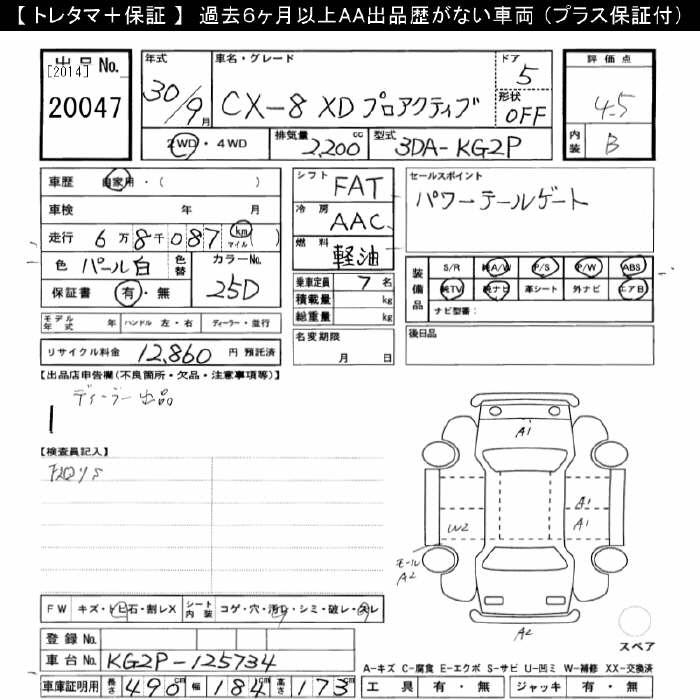 【 トレタマ＋保証 】 過去６ヶ月以上ＡＡ出品歴がない車両（プラス保証付）
出品 No.
[2014]
20047
年式
30/9月
車名・グレード
CX-8 XD プロアクティブ
ドア
5
形状
OFF
評価点
4.5
内装
B
2WD・4WD
排気量
2,200 cc
型式
3DA-KG2P
車歴 自家用・( )
車検 年 月
走行 6万8千087 km マイル ( )
色 パール白 色替
カラーNo. 25D
保証書 有・無
シフト FAT
冷房 AAC
燃料 軽油
乗車定員 7名
積載量 kg
総重量 kg
名変期限
月 日
セールスポイント
パワーテールゲート
装備品
S/R 純A/W P/S P/W ABS
純TV 純ナビ 革シート 外ナビ エアB
ナビ型番：
後日品
モデル年式 年 ハンドル 左・右 ディーラー・並行
リサイクル料金 12,860 円 預託済
【出品店申告欄(不良箇所・欠品・注意事項等)】
ディーラー出品
【検査員記入】
A1
A1
A1
W2
モール
A2
A2
スペア
FW キズ・トビ石・割レX シート内装 コゲ・穴・汚レ・シミ・破レ・スレ
登録 No.
車台 No. KG2P-125734
車庫証明用 長さ 490cm 幅 184cm 高さ 173cm
A-キズ C-腐食 E-エクボ S-サビ U-凹ミ W-補修 XX-交換済
工具 有・無 ジャッキ 有・無